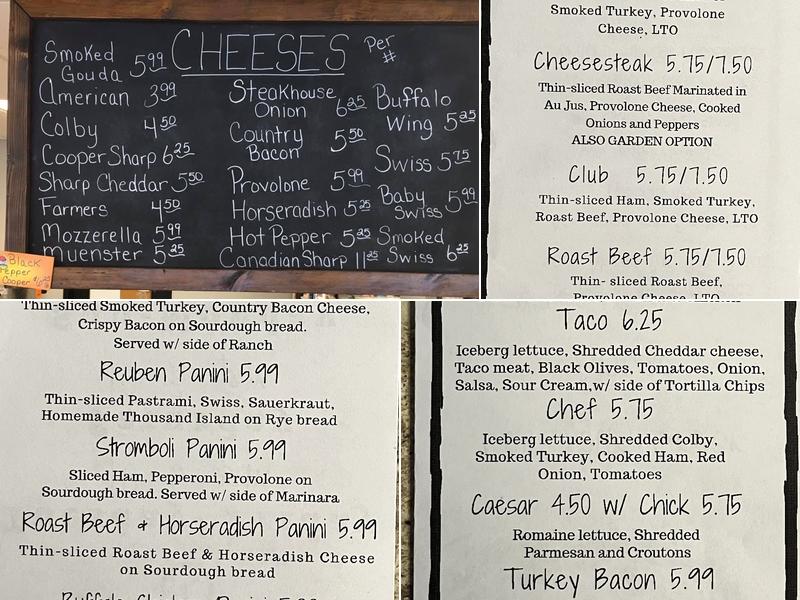 CHEESES Per #
Smoked Gouda 5.99
American 3.99
Colby 4.50
Cooper Sharp 6.25
Sharp Cheddar 5.50
Farmers 4.50
Mozzerella 5.99
Muenster 5.25
Steakhouse Onion 6.25
Country Bacon 5.50
Provolone 5.99
Horseradish 5.25
Hot Pepper 5.25
Canadian Sharp 11.25
Buffalo Wing 5.25
Swiss 5.75
Baby Swiss 5.99
Smoked Swiss 6.25
Black
Pepper
Cooper
Smoked Turkey, Provolone
Cheese, LTO
Cheesesteak 5.75/7.50
Thin-sliced Roast Beef Marinated in
Au Jus, Provolone Cheese, Cooked
Onions and Peppers
ALSO GARDEN OPTION
Club 5.75/7.50
Thin-sliced Ham, Smoked Turkey,
Roast Beef, Provolone Cheese, LTO
Roast Beef 5.75/7.50
Thin- sliced Roast Beef,
Provolone Cheese, LTO
Thin-sliced Smoked Turkey, Country Bacon Cheese,
Crispy Bacon on Sourdough bread.
Served w/ side of Ranch
Reuben Panini 5.99
Thin-sliced Pastrami, Swiss, Sauerkraut,
Homemade Thousand Island on Rye bread
Stromboli Panini 5.99
Sliced Ham, Pepperoni, Provolone on
Sourdough bread. Served w/ side of Marinara
Roast Beef & Horseradish Panini 5.99
Thin-sliced Roast Beef & Horseradish Cheese
on Sourdough bread
Taco 6.25
Iceberg lettuce, Shredded Cheddar cheese,
Taco meat, Black Olives, Tomatoes, Onion,
Salsa, Sour Cream,w/ side of Tortilla Chips
Chef 5.75
Iceberg lettuce, Shredded Colby,
Smoked Turkey, Cooked Ham, Red
Onion, Tomatoes
Caesar 4.50 w/ Chick 5.75
Romaine lettuce, Shredded
Parmesan and Croutons
Turkey Bacon 5.99